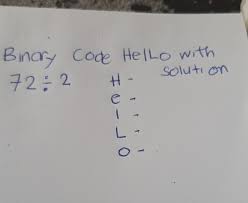 Binary Code HeLLo with
solution
72 ÷ 2 H -
e -
l -
L -
O -